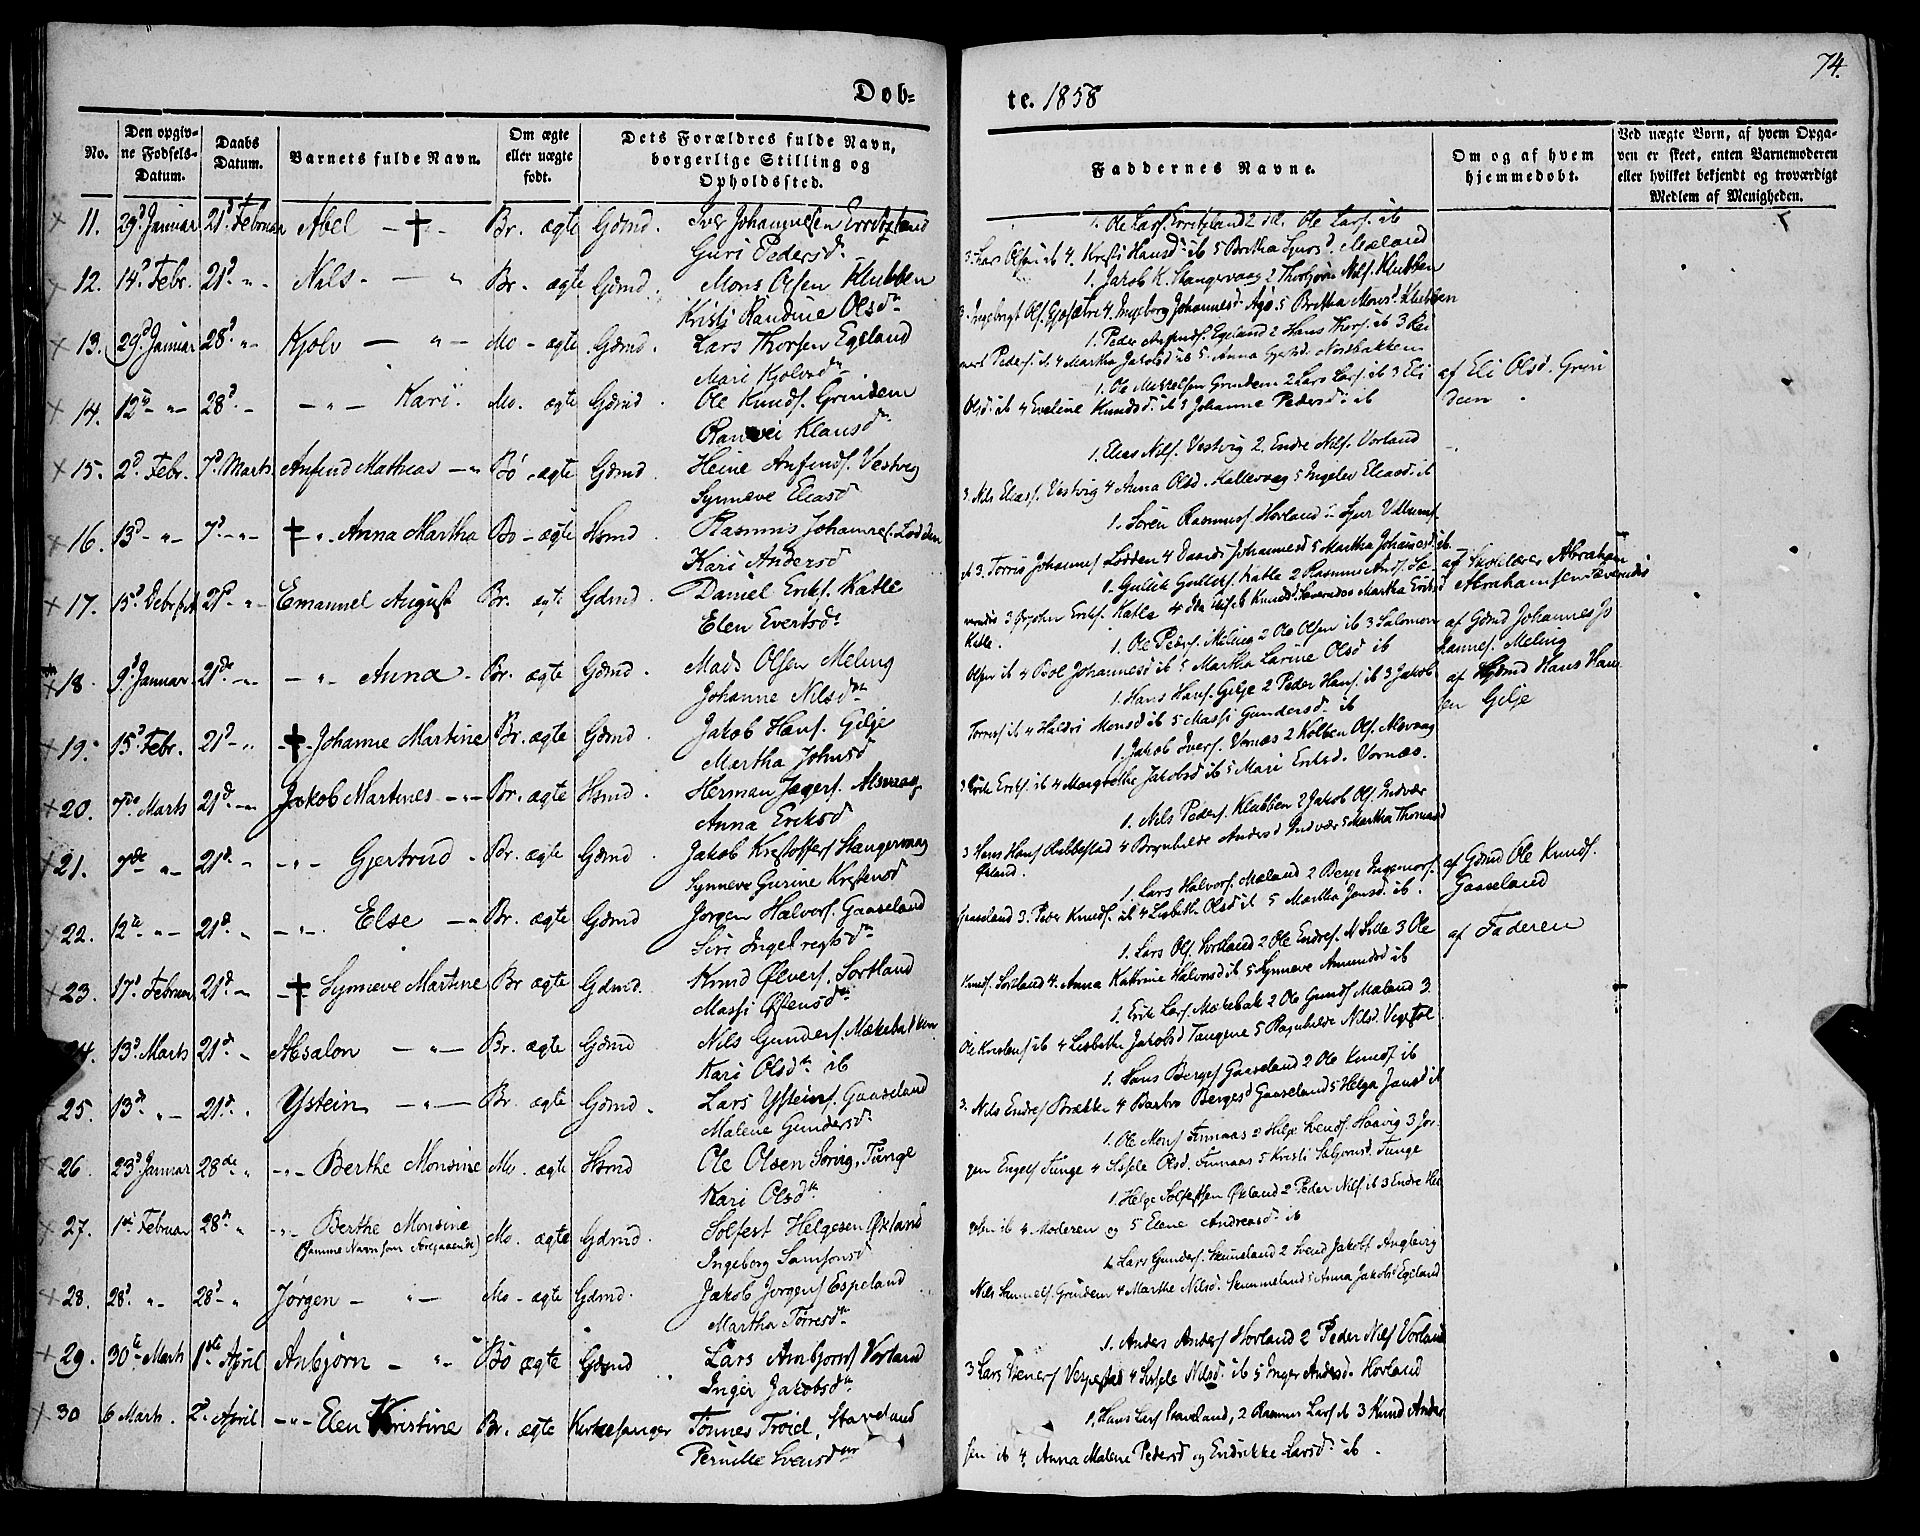 Dob=
te. 1858
74.
No.
Den opgiv-
ne Fodsels-
Datum.
Daabs
Datum.
Barnets fulde Navn.
Om ægte
eller uægte
fodt.
Dets Forældres fulde Navn,
borgerlige Stilling og
Opholdssted.
Faddernes Navne.
Om og af hvem
hjemmedobt.
Ved uægte Born, af hvem Opga-
ven er skeet, enten Barnemoderen
eller hvilket bekjendt og troværdigt
Medlem af Menigheden.
11. 29d Januar 21d Februar Abel — † Br. ægte Gdmd. Iver Johannesen
Guri Pedersd.
1. Ole Lars. 2 Ole Lars. ib
3. Lars Olsen ib 4. Kristi Hansd. ib 5 Bertha Sjursd. Mæland
12. 14d Febr. 21d Nils — Br. ægte Gdmd. Mons Olsen Klubben
Kristi Randine Olsdr
1. Jakob K. Stangervaag 2 Thorbjørn Nils. Klubben
3. Ingebrigt Ols. 4 Ingeborg Johannesd. Aga 5 Bertha Monsd. Klubben
13. 29d Januar 28d Kjolv — Mo — ægte Gdmd. Lars Thorsen Egeland
Mari Kjolvsdr
1. Peder Egeland 2 Hans Thors. ib 3 Rei
nert Peders. ib 4 Martha Jakobsd ib 5. Anna Nordbakken
14. 12te 28d Kari. Mo. ægte Gdmd. Ole Knuds. Grindem
Ranvei Klausdr
1. Ole Mikkelsen Grindem 2 Lars Lars. ib 3 Eli
Olsd. ib 4 Eveline Knudsd. ib 5 Johanne Pedersd. ib
af Eli Olsd. Grin
dem
15. 2d Febr. 7d Marts Anfind Mathias Bö ægte Gdmd. Heine Anfinds. Vestvig
Synneve Eliasd
1. Elias Nils. Vestvig 2. Endre Nils. Vorland
3. Nils Elias. Vestvig 4 Anna Olsd. Kallevaag 5 Ingelev Eliasd. ib
16. 13d 7d † Anna Martha Bo — ægte Hsmd. Rasmus Johannes. Lodden
Kari Andersd
1. Sören Rasmus. Hovland
ib 3. Torris Johannes Lodden 4 Johannesd 5 Martha Johannesd. ib.
af Skolelærer Abraham
Abrahamsen
17. 15d Debr 21d Emanuel August Br. ægte Gdmd. Daniel Eriks. Katle
Elen Evertsdr
1. Gullik Katle 2 Rasmus
3 Ørjohn Eriks. Katle 4 5 Martha Eriksd
Katle.
18. 9d Januar 21de Anna Br. ægte Gdmd. Mads Olsen Meling
Johanne Nilsdr
1. Ole Peders. Meling 2 Ole Olsen ib 3 Salomon
Olsen ib 4 Boel Johannesd ib 5 Martha Larine Olsd ib
af Gdmd Johannes Jo
hannes. Meling
19. 15d Febr. 21d † Johanne Martine Br. ægte Gdmd. Jakob Hans. Gilje
Martha Johnsd
1. Hans Hans. Gilje 2 Peder Hans. ib 3 Jakob
Torres. ib 4 Haldri Monsd ib 5 Massi Gundersd. ib
af Gdmd Hans Han
sen Gilje
20. 7de Marts 21d Jakob Martines Br. ægte Hsmd. Herman Alsvaag
Anna Eriksd
1. Jakob Ivers. Vornæs 2 Kolben Ols. Alsvaag
3 Erik Eriks. ib 4 Margrethe Jakobsd ib 5 Mari Eriksd. Vornæs.
21. 7de 21d Gjertrud Br. ægte Gdmd. Jakob Kristoffers Stangervaag
Synneve Gurine Krestensd
1. Nils Peders. Klubben 2 Jakob Ols. Indvær
3 Hans Hans Rubbestad 4 Brynhilde Andersd Indvær 5 Martha Thomasd
Økland.
22. 12te 21d Else Br. ægte Gdmd. Jørgen Halvors. Gaaseland
Siri Ingebregtsdr
1. Lars Halvors. Mæland 2 Berge
Gaaseland 3. Peder Knuds. ib 4 Lisbeth Olsd ib 5 Martha Jansd. ib.
af Gdmd Ole Knuds.
Gaaseland
23. 17d Februar 21d † Synneve Martine Br ægte Gdmd. Knud Ølvers. Sortland
Massi Østensdr
1. Lars Ols. Sortland 2 Ole Endres. N Lille 3 Ole
Knuds. Sortland 4. Anna Kathrine Halvorsd ib 5 Synneve Amundsd ib
af Faderen
24. 13d Marts 21d Absalon — Br. ægte Gdmd Nils Gunders. Mækebakken
Kari Olsdr ib
1. Erik Lars. Mækebak 2 Ole Gunds Mæland 3
Ole Kristens ib 4 Lisbethe Jakobsd Tangene 5 Ragnhilde Nilsd.
25. 13de 21d Ystein — Br. ægte Gdmd. Lars Ysteins. Gaaseland
Malene Gundersdr
1. Hans Berges Gaaseland 2 Ole Knuds. ib
3. Nils Endres Brække 4 Barbro Bergesd Gaaseland 5 Helga Jansd ib
26. 23d Januar 28de Berthe Monsine Mo. ægte Hsmd Ole Olsen Sørvig, Tunge
Kari Olsdr
1. Ole Mons Finnaas 2 Helge Svends. Haavig 3 Jør
gen Engels Tunge 4 Sissele Olsd. Finnaas 5 Kristi Tunge
27. 1ste Februar 28de Berthe Monsine
(Samme Navn som Foregaaende)
Mo. ægte Gdmd. Solfest Helgesen Økland
Ingeborg Samsonsd
1. Helge Solfestsen Økland 2 Peder Nils. ib 3 Endre Hel
gesen ib 4. Moderen og 5 Elene Andreasd. ib
28. 28d 28d Jørgen — Mo — ægte Gdmd. Jakob Jørgens Espeland
Martha Tørresdr
1. Lars Gunders. Skimeland 2 Svend Jakobs. Anglevig
Nils Samuels. Grindem 4 Marthe Nilsd. Skimmeland 5 Anna Jakobsd Egeland
29. 30te Marts 1ste April Anbjørn — Bö ægte Gdmd Lars Anbjorns Vorland
Inger Jakobsdr
1. Anders Anders Hovland 2 Peder Nils Vorland
3 Lars 4 Sissele Nilsd. ib 5 Inger Andersd. Hovland
30 6 Marts. 2d April Elen Kristine Br. ægte Kirkesanger Tönnes Troid, Stavland
Pernille Svensdtr
1. Hans Lars Stavland, 2 Rasmus Lars ib 3 Knud Ander
sen ib 4. Anna Malene Pedersd og Endrikke Larsd. ib.